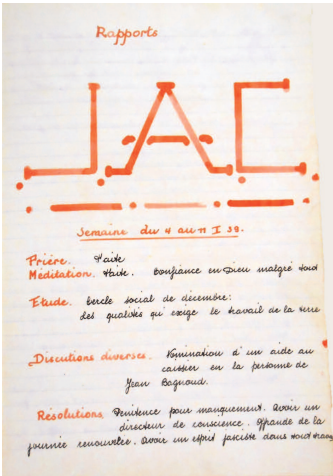 Rapports
JAC
Semaine du 4 au 11 I 39.
Prière. Faite
Méditation. Faite. Confiance en Dieu malgré tout
Etude. Cercle social de décembre:
des qualités qu'exige le travail de la terre
Discutions diverses. Nomination d'un aide au
caissier en la personne de
Jean Bagnoud.
Résolutions. Pénitence pour manquement. Avoir un
directeur de conscience. Offrande de la
journée renouvelée. Avoir un esprit fasciste dans tout